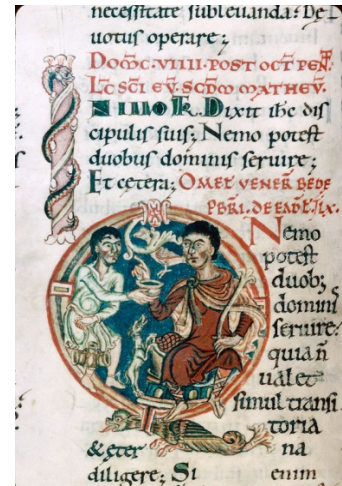 necessitate subleuanda: De
uotus operare;
DOMC·VIIII·POST OCT PEN
LC SCI EV. SCDM MATHEV.
IN ILLO TR. Dixit ihc dis
cipulis suis; Nemo potest
duobus dominis seruire;
Et cetera; OMEL VENER BEDE
PBRI. DE EADE
Nemo
potest
duob;
domini
seruire:
quia n
ualet
simul transi
toria
& eter na
diligere; Si enim